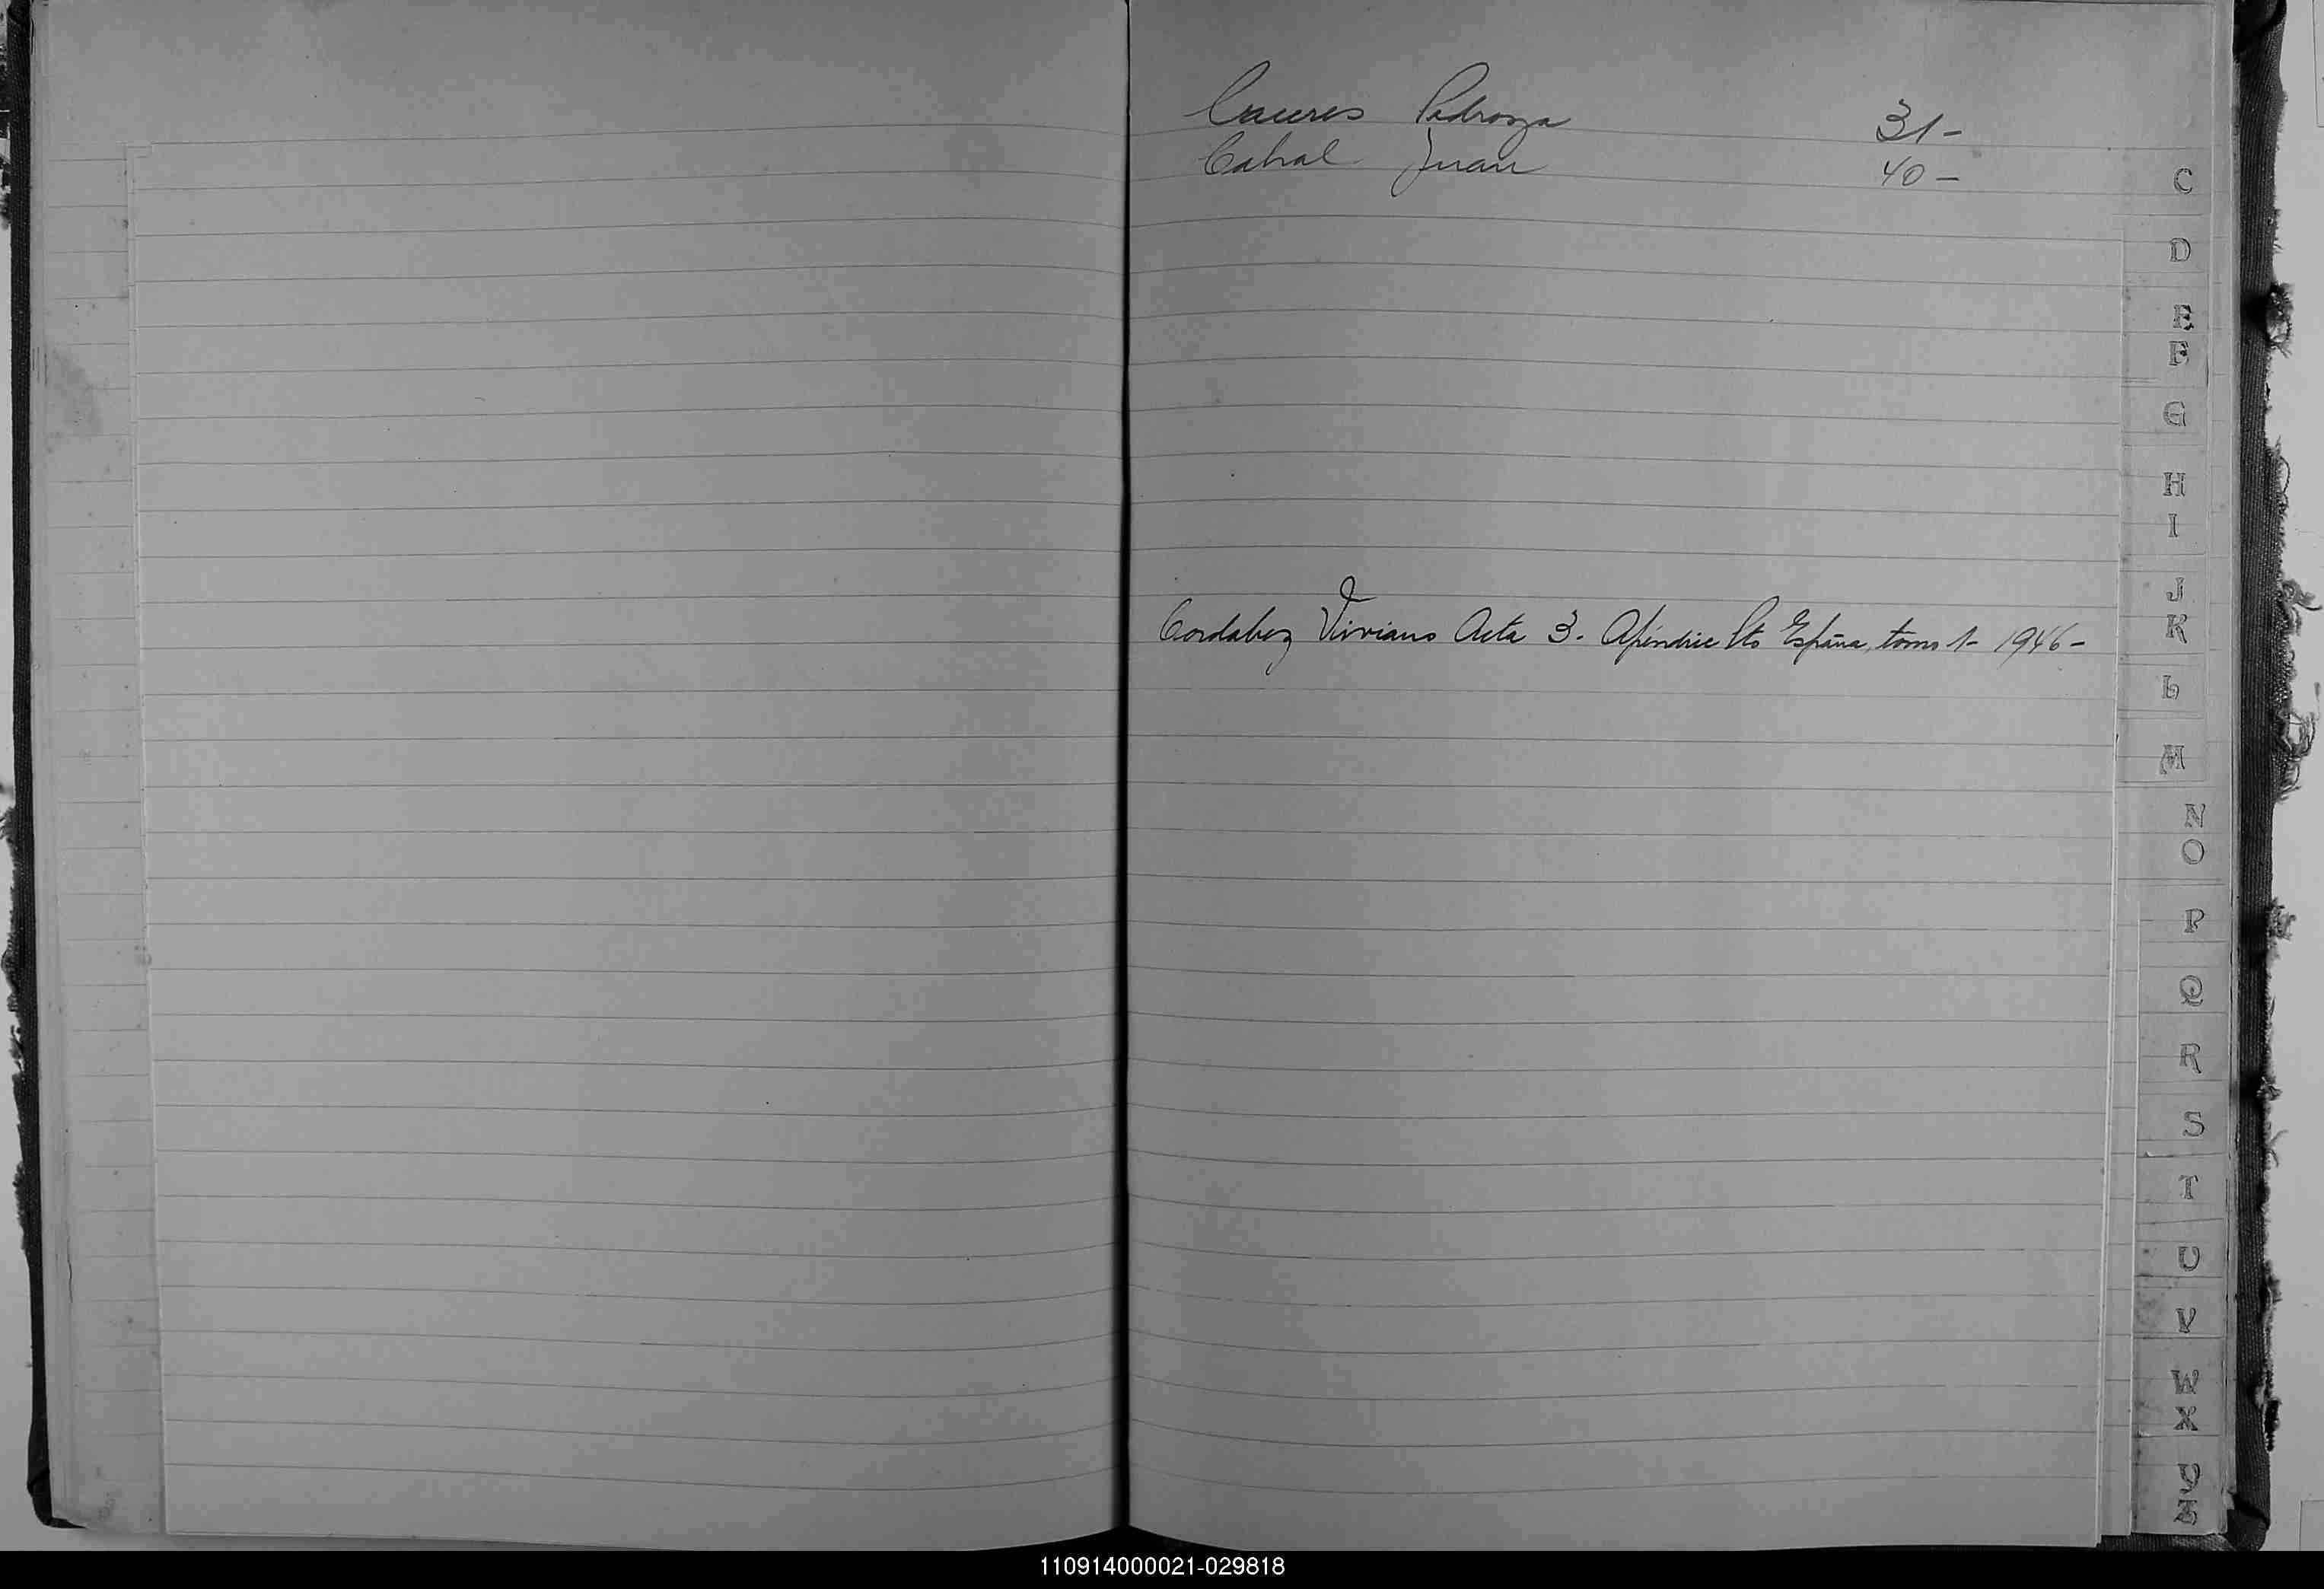 Caceres Pedroza 31-
Cabral Juan 40-
Cordabez Viviano Acta 3. Apéndice Pto España, tomo 1- 1946-
C
D
E
F
G
H
I
J
K
L
M
N
O
P
Q
R
S
T
U
V
W
X
Y
Z
110914000021-029818